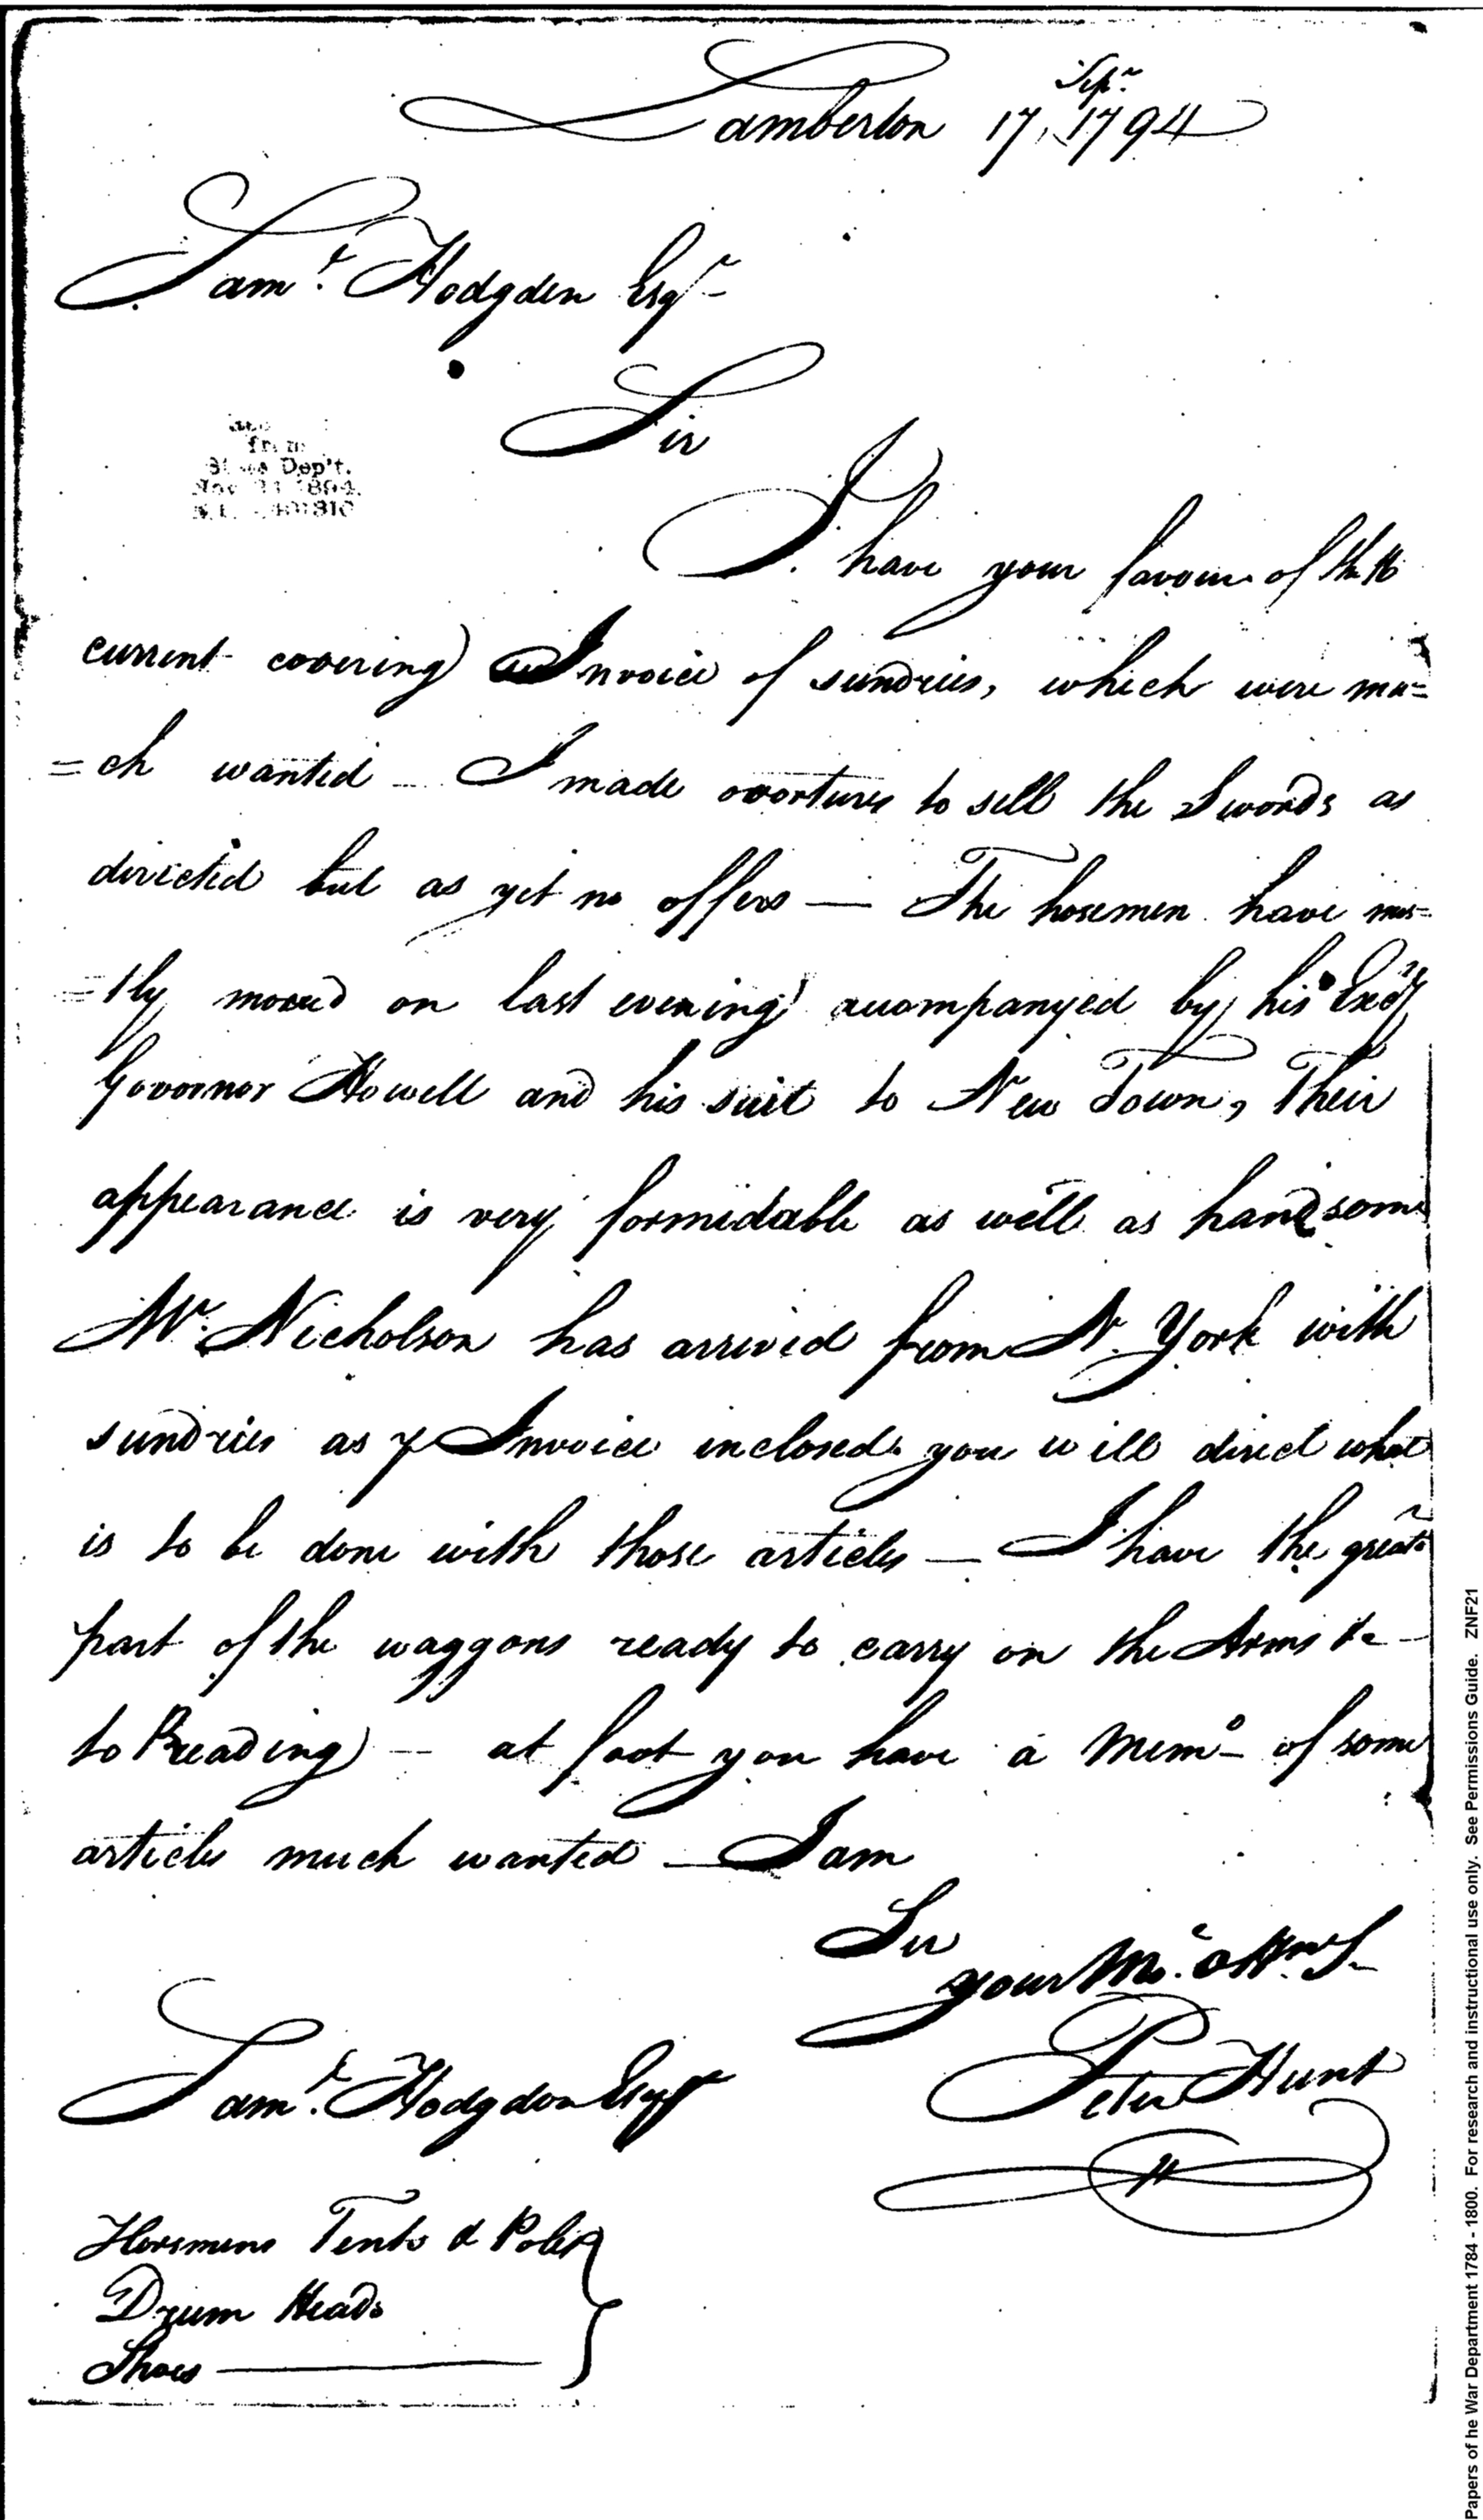 Sepr.
Lamberton 17, 1794
Saml. Hodgden Esqr
Sir
Dep't.
1894.
I have your favour of the 16
current covering Invoice of sundries, which were mu=
=ch wanted _ I made overtures to sell the Swords as
directed but as yet no offers — The horsemen have mos=
=tly moved on last evening accompanyed by his Excy
Governor Howell and his suit to New Town, Their
appearance is very formidable as well as handsome
Mr. Nicholson has arrived from N. York with
sundries as ⅌ Invoice inclosed, you will direct what
is to be done with those articles — I have the greatr
part of the waggons ready to carry on the Arms &c
to Reading — at foot you have a Memo of some
articles much wanted _ I am
Sir
your Mo. O Hm S.
Saml. Hodgdon Esqr
Peter Hunt
Horsmens Tents & Poles
Drum Heads
Shoes
Papers of he War Department 1784 - 1800. For research and instructional use only. See Permissions Guide. ZNF21